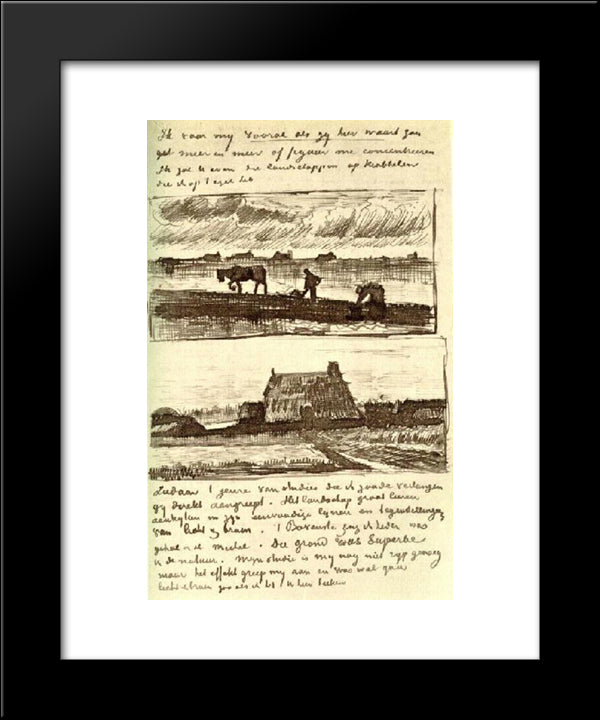 Ik voor my vooral als gy hier waart zou
zal meer en meer of figuur me concentreeren
Ik zal U even die landschappen op krabbelen
die ik op 't ezel heb
't genre van studies die ik zoude verlangen
gy direkt aangreept. Het landschap groot leeren
aankyken in zyn eenvoudige lynen en tegenstellingen
van licht & bruin. 't Bovenste zag ik heden was
geheel à la Michel. Die grond was superbe
in de natuur. Myn studie is my nog niet ryp genoeg
maar het effekt greep my aan en was wel qua
licht & bruin zoo als ik het U hier teeken